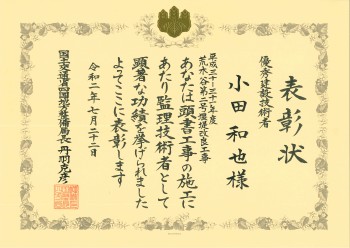 表彰状
優秀建設技術者
小田和也様
平成三十・三十一年度
荒水谷第二号堰堤改良工事
あなたは頭書工事の施工に
あたり監理技術者として
顕著な功績を挙げられました
よってここに表彰します
令和二年七月二十二日
国土交通省四国地方整備局長 丹羽克彦